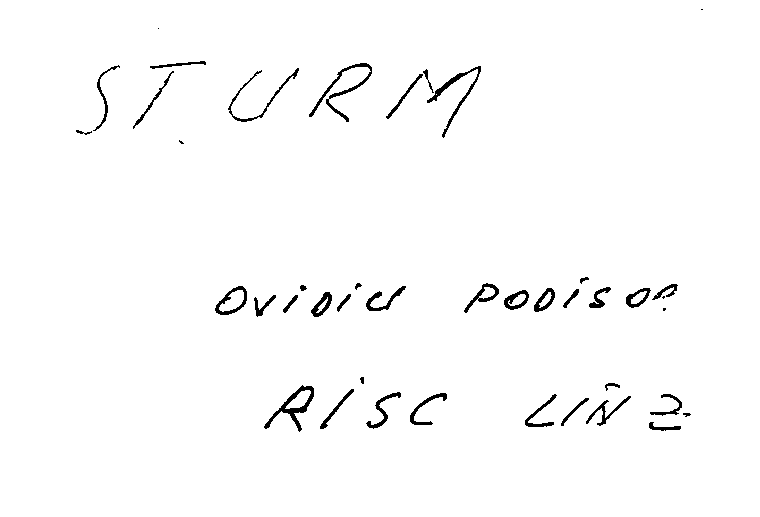 STURM
OVIDIU PODISOR
RISC LINZ